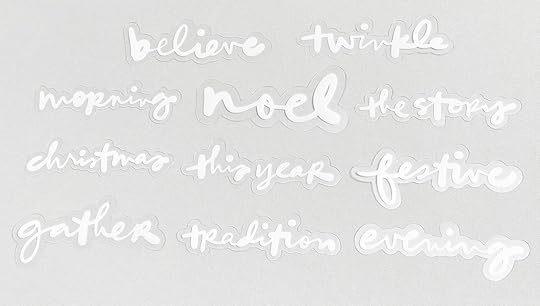 believe twinkle
morning noel the story
christmas this year festive
gather tradition evening